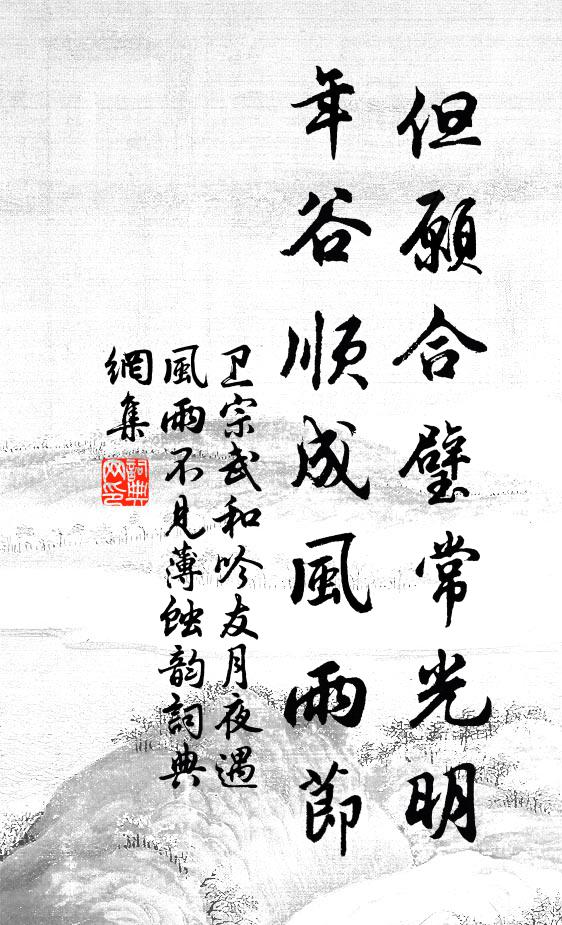 但願合璧常光明
年谷順成風雨節
卫宗武和吟友月夜遇
風雨不見薄蝕韵詞典
網集
詞典
网印